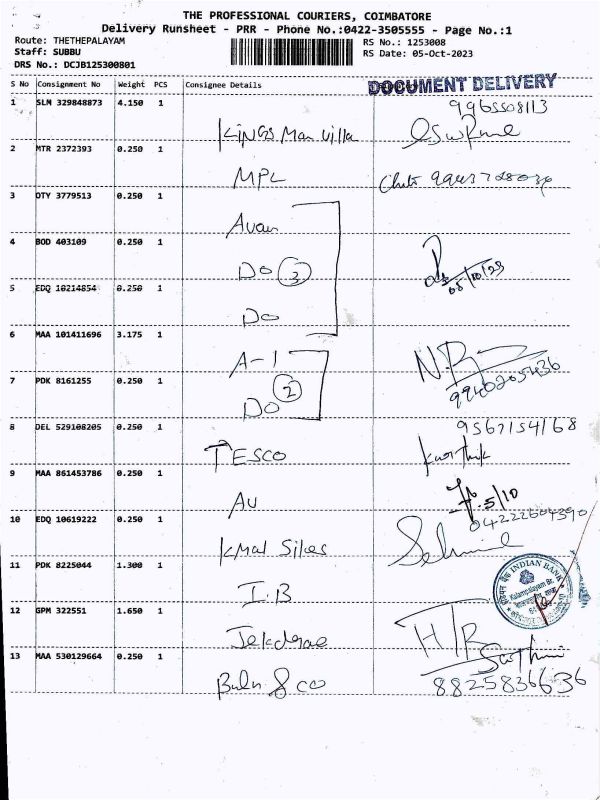 THE PROFESSIONAL COURIERS, COIMBATORE
Delivery Runsheet - PRR - Phone No.:0422-3505555 - Page No.:1
Route: THETHEPALAYAM
Staff: SUBBU
DRS No.: DCJB125300801
RS No.: 1253008
RS Date: 05-Oct-2023
S No Consignment No Weight PCS Consignee Details
DOCUMENT DELIVERY
1 SLM 329848873 4.150 1
9965508113
Kings Man Villa
2 MTR 2372393 0.250 1
MPL
3 OTY 3779513 0.250 1
Avan
4 BOD 403109 0.250 1
DO 3
05/10/23
5 EDQ 10214854 0.250 1
DO
6 MAA 101411696 3.175 1
A-1
9940205436
7 PDK 8161255 0.250 1
DO 2
8 DEL 529108205 0.250 1
9567154168
TESCO
Karthik
9 MAA 861453786 0.250 1
AU
5/10
04222604390
10 EDQ 10619222 0.250 1
Kmal Silkes
11 PDK 8225044 1.300 1
I.B
INDIAN BANK
12 GPM 322551 1.650 1
13 MAA 530129664 0.250 1
8825836636